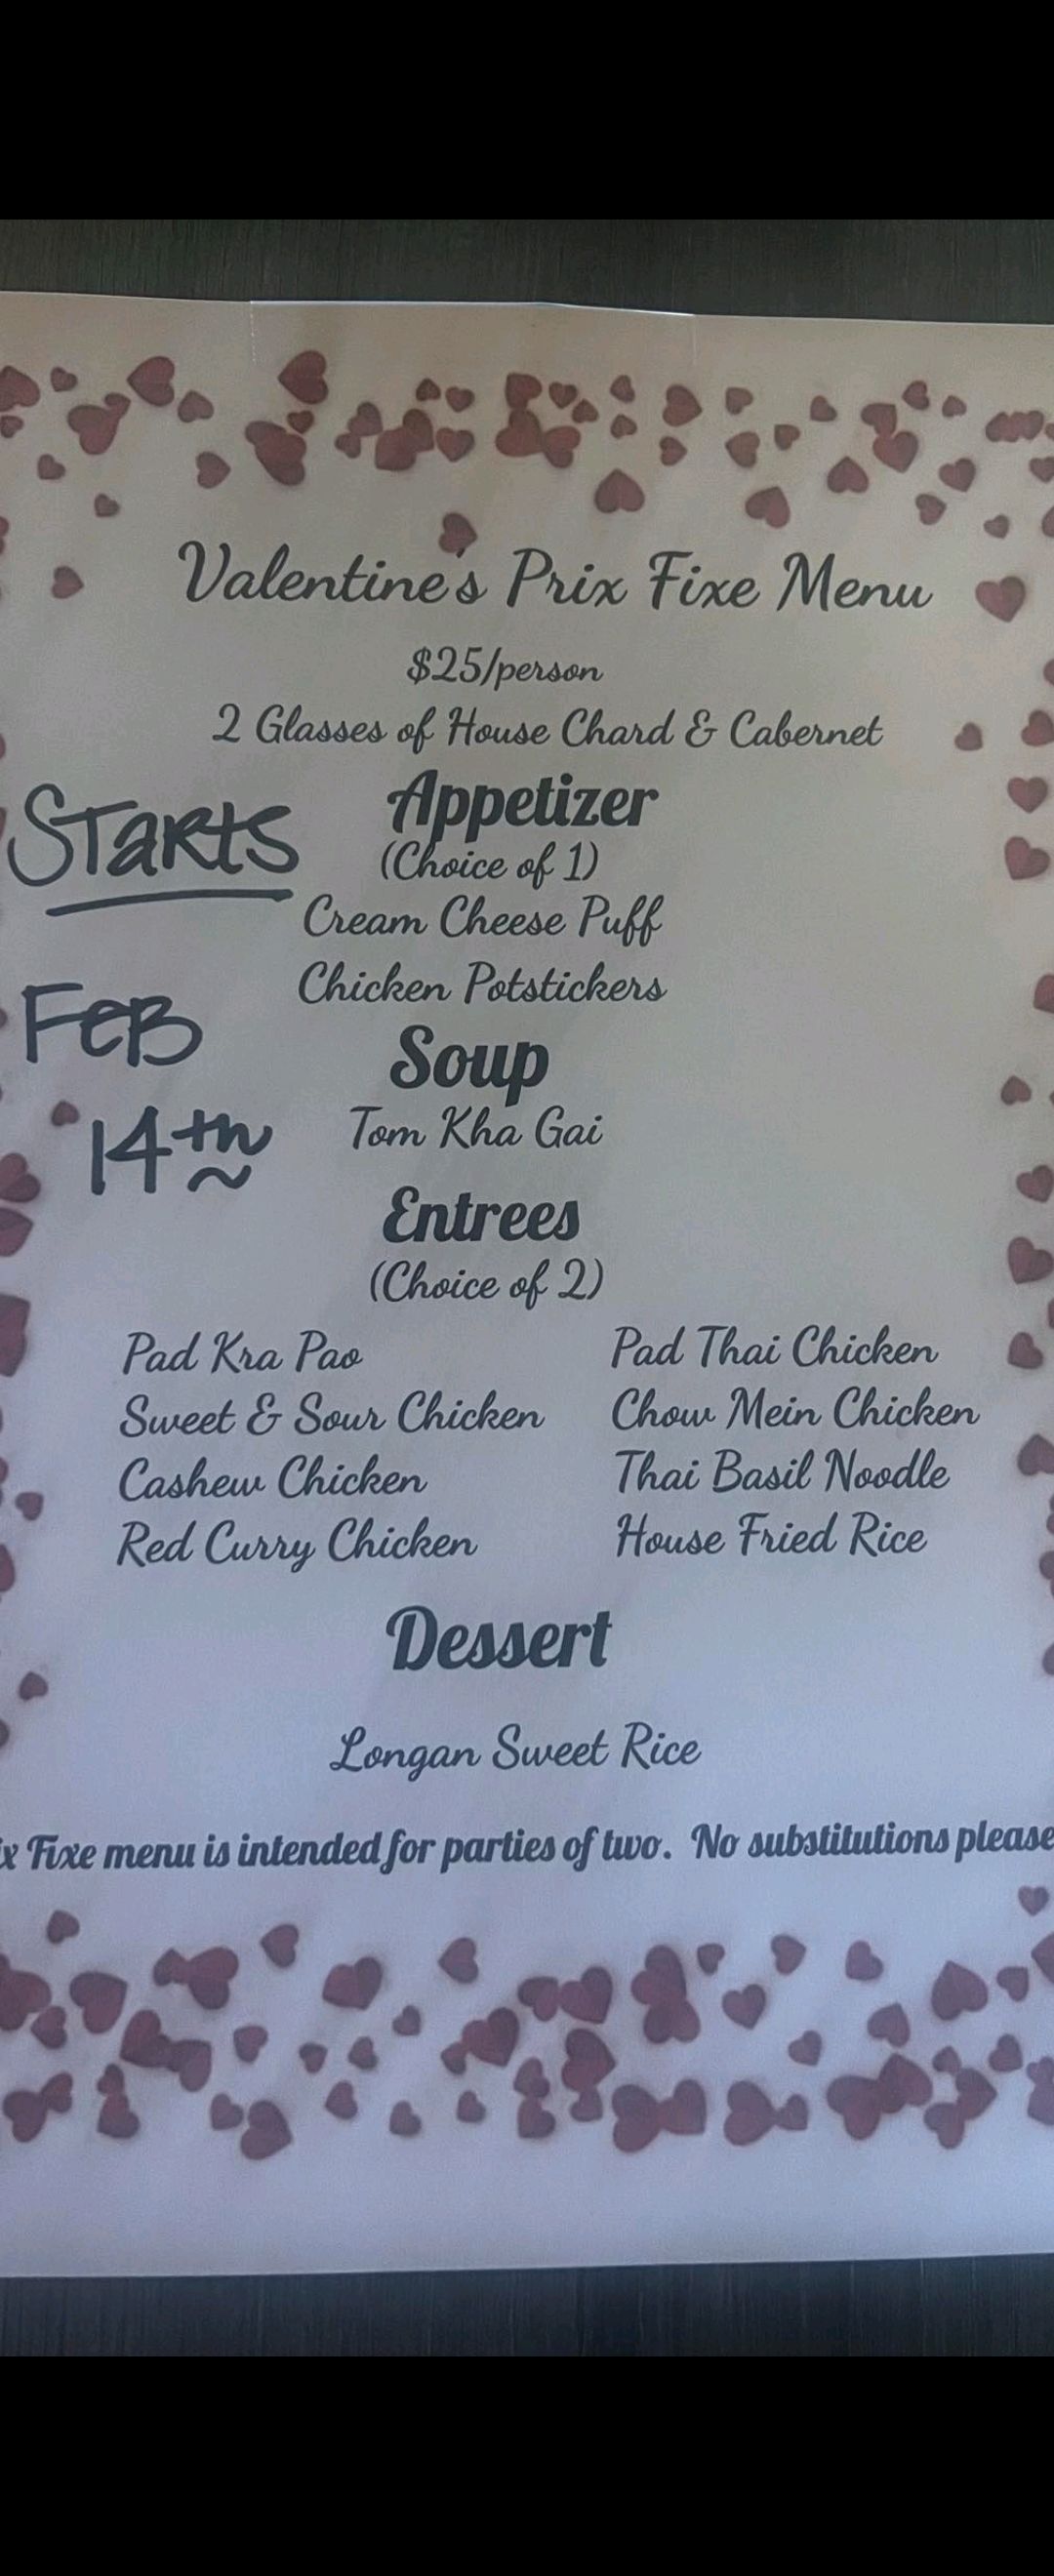 Valentine's Prix Fixe Menu
$25/person
2 Glasses of House Chard & Cabernet
STaRts
FeB
14th
Appetizer
(Choice of 1)
Cream Cheese Puff
Chicken Potstickers
Soup
Tom Kha Gai
Entrees
(Choice of 2)
Pad Kra Pao
Sweet & Sour Chicken
Cashew Chicken
Red Curry Chicken
Pad Thai Chicken
Chow Mein Chicken
Thai Basil Noodle
House Fried Rice
Dessert
Longan Sweet Rice
ix Fixe menu is intended for parties of two. No substitutions please